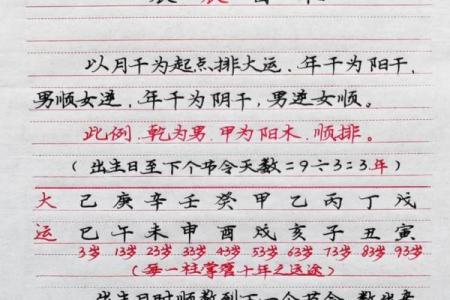 以月干为起点排大运．年干为阳干，
男顺女逆，年干为阴干，男逆女顺。
此例．乾为男．甲为阳木．顺排。
（出生日至下个节令天数=9÷3=3年）
大 己 庚 辛 壬 癸 甲 乙 丙 丁 戊
运 巳 午 未 申 酉 戌 亥 子 丑 寅
3岁 13岁 23岁 33岁 43岁 53岁 63岁 73岁 83岁 93岁
（每一柱掌管十年之运途）
出生日时顺数到下一个节令